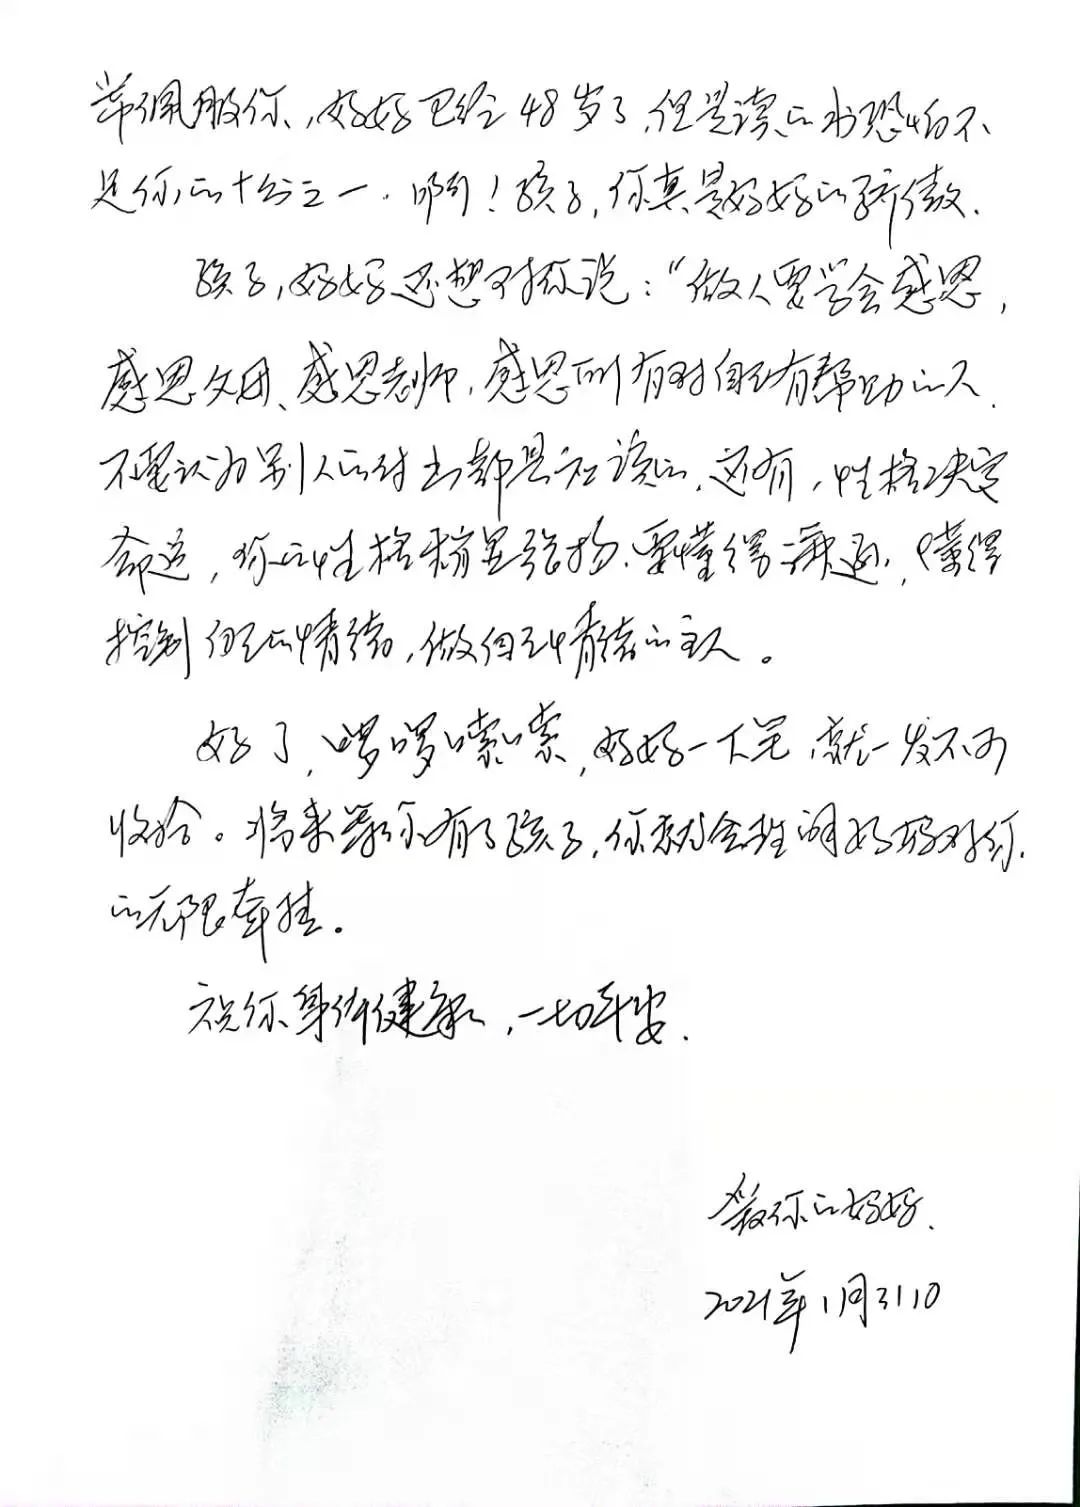 常佩服你，妈妈已经48岁了，但是读的书恐怕不
足你的十分之一．啊！孩子，你真是妈妈的骄傲．
孩子，妈妈还想对你说：“做人要学会感恩，
感恩父母、感恩老师，感恩所有对自己有帮助的人．
不要认为别人的付出都是应该的．还有，性格决定
命运，你的性格稍显张扬．要懂得谦逊，懂得
控制自己的情绪，做自己情绪的主人。
好了，啰啰嗦嗦，妈妈一下笔，就一发不可
收拾。将来等你有了孩子，你就会明妈妈对你
的无限牵挂。
祝你身体健康，一切平安．
爱你的妈妈．
2021年1月31日